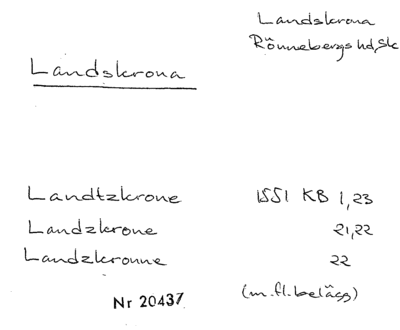 Landskrona
Rönnebergs hd, Sk
Landskrona
Landtzkrone 1551 KB 1,23
Landzkrone 21,22
Landzkronne 22
(m.fl.belägg)
Nr 20437